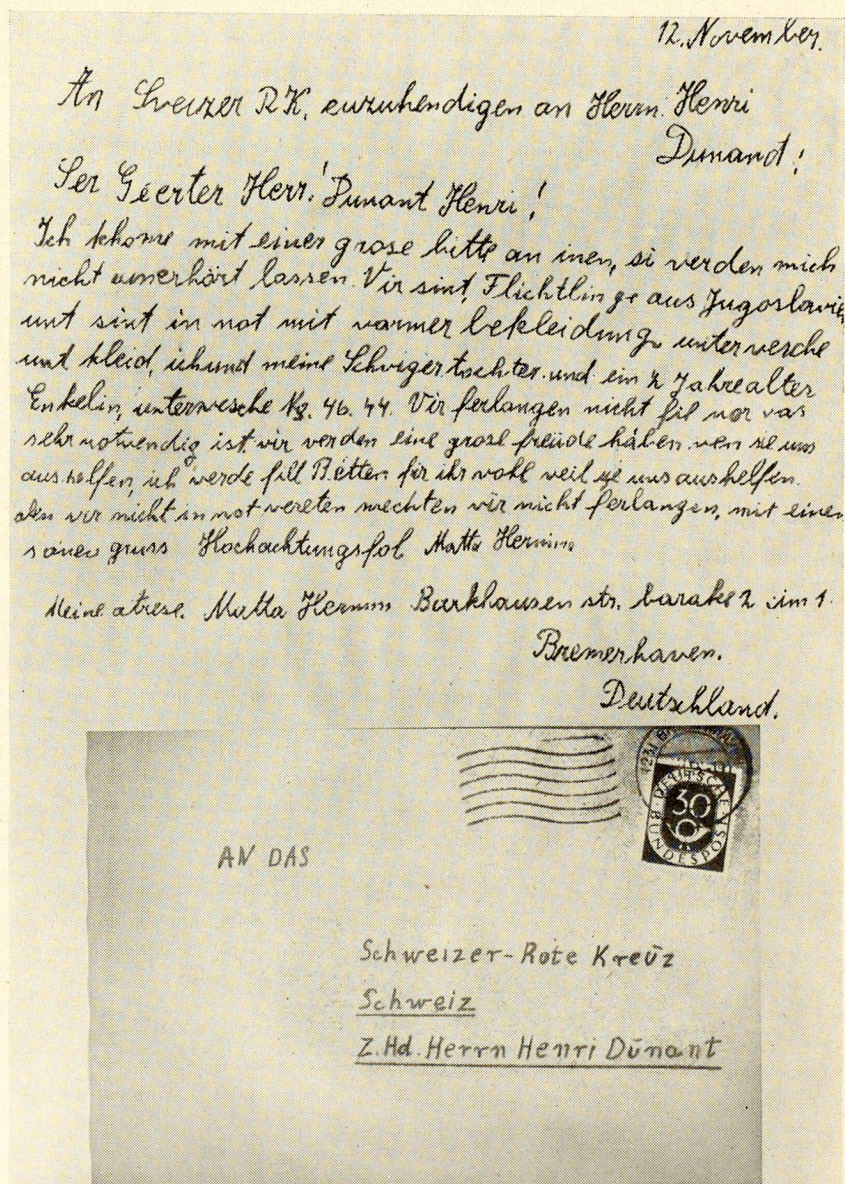 12. November.
An Sveizer RK, euzuhendigen an Herrn. Henri
Dunand!
Ser Geerter Herr! Dunant Henri!
Ich khome mit einer grose bitte an inen, si verden mich
nicht unerhört lassen. Vir sint, Flichtlinge aus Jugoslavien
unt sint in not mit varmer bekleidung, untervesche
unt kleid, ich und meine Schvigertochter. und ein 2 Jahrealter
Enkelin, untervesche No. 46. 44. Vir ferlangen nicht fil nor vas
sehr notvendig ist. vir verden eine grose freude haben. ven sie uns
aus helfen, ich verde fill Betten fir ihr vohl veil sie uns aushelfen.
den vir nicht in not vereten mechten vir nicht ferlangen, mit einen
sönen gruss Hochachtungsfol Matta
Meine atrese. Matta Burkhausen str. barake 2 zim 1.
Bremerhaven.
Deutschland.
DEUTSCHE
30
BUNDESPOST
AN DAS
Schweizer-Rote Kreuz
Schweiz
Z. Hd. Herrn Henri Dünant